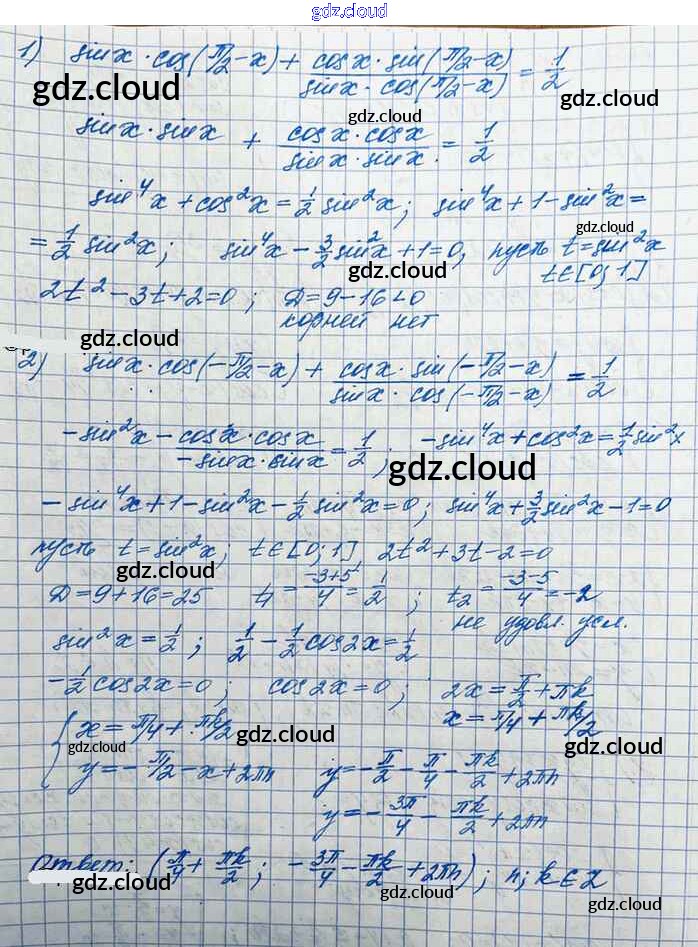 gdz.cloud
1) sinx · cos(π/2 - x) + cosx · sin(π/2 - x) / sinx · cos(π/2 - x) = 1/2
gdz.cloud gdz.cloud
gdz.cloud
sinx · sinx + cosx · cosx / sinx · sinx = 1/2
sin⁴x + cos²x = 1/2 sin²x; sin⁴x + 1 - sin²x =
gdz.cloud
= 1/2 sin²x; sin⁴x - 3/2 sin²x + 1 = 0, пусть t = sin²x
gdz.cloud t∈[0; 1]
2t² - 3t + 2 = 0; D = 9 - 16 < 0
корней нет
gdz.cloud
2) sinx · cos(-π/2 - x) + cosx · sin(-π/2 - x) / sinx · cos(-π/2 - x) = 1/2
gdz.cloud
-sin²x - cosx · cosx / -sinx · sinx = 1/2; -sin⁴x + cos²x = 1/2 sin²x
gdz.cloud
-sin⁴x + 1 - sin²x - 1/2 sin²x = 0; sin⁴x + 3/2 sin²x - 1 = 0
пусть t = sin²x; t∈[0; 1] 2t² + 3t - 2 = 0
gdz.cloud
D = 9 + 16 = 25 t₁ = -3+5/4 = 1/2; t₂ = -3-5/4 = -2
gdz.cloud
не удовл. усл.
sin²x = 1/2; 1/2 - 1/2 cos2x = 1/2
gdz.cloud
-1/2 cos2x = 0; cos2x = 0; 2x = π/2 + πk
gdz.cloud
x = π/4 + πk/2
{ x = π/4 + πk/2
gdz.cloud gdz.cloud gdz.cloud
y = -π/2 - x + 2πn y = -π/2 - π/4 - πk/2 + 2πn
y = -3π/4 - πk/2 + 2πn
gdz.cloud
Ответ: (π/4 + πk/2; -3π/4 - πk/2 + 2πn); n; k ∈ Z
gdz.cloud gdz.cloud
gdz.cloud